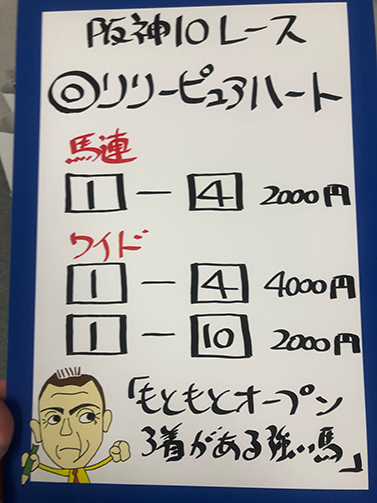 阪神10レース
◎リリーピュアハート
馬連
1－4 2000円
ワイド
1－4 4000円
1－10 2000円
「もともとオープン
3着がある強い馬」